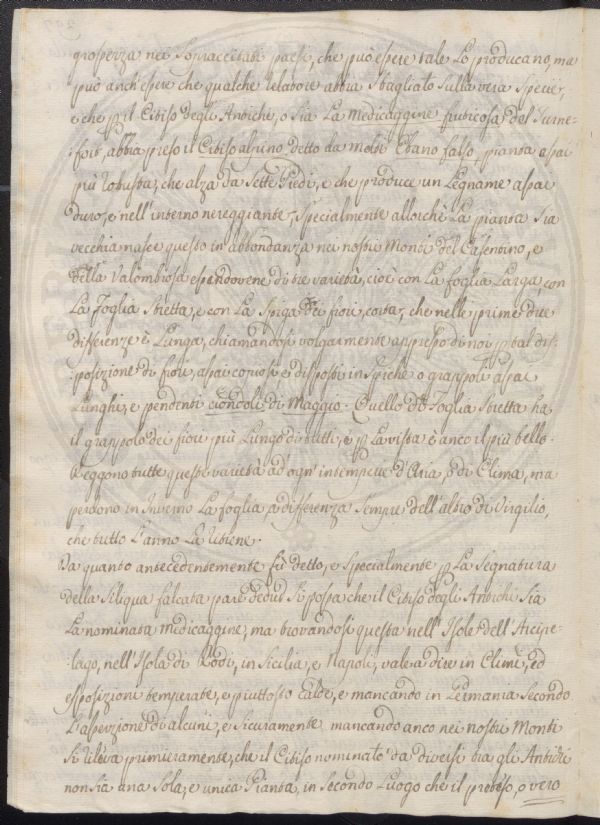 grossezza nei sopraccitati paesi, che può essere tale lo producano, ma
può anch'essere che qualche relatore abbia sbagliato sulla vera specie,
e che p il Citiso degli Antichi, o sia la Medicaggine fruticosa del Turne-
:fort, abbia preso il Citiso alpino detto da molti Ebano falso, pianta assai
più robusta, che alza da sette Piedi, e che produce un Legname assai
duro, e nell'interno nereggiante, specialmente allorchè la pianta sia
vecchia nasce questo in abbondanza nei nostri Monti del Casentino, e
della Valombrosa essendovene di tre varietà, cioè con la foglia Larga, con
La foglia stretta, e con La spiga dei fiori corta, che nelle prime due
differenze è Lunga, chiamandosi volgarmente appresso di noi p tal dis-
:posizione di fiori, assai copiosi e disposti in spiche o grappoli assai
Lunghi, e pendenti ciondoli di Maggio. Quello di Foglia stretta ha
il grappolo dei fiori più Lungo di tutti, e p la vista è anco il più bello.
Reggono tutte queste varietà ad'ogn'intemperie d'Aria, o di Clima, ma
perdono in Inverno la foglia, a differenza sempre dell'altro di Virgilio,
che tutto l'anno la ritiene.
Da quanto antecedentemente fù detto, e specialmente p La segnatura
della Siliqua falcata pare dedur si possa che il Citiso degli Antichi sia
La nominata Medicaggine, ma trovandosi questa nell'Isole dell'Arcipe-
-lago, nell'Isola di Rodi, in Sicilia, e Napoli, vale a dire in Climi, ed
esposizioni temperate, e piuttosto calde, e mancando in Germania secondo
L'asserzione di alcuni, e sicuramente mancando anco nei nostri Monti
si rileva primieramente, che il Citiso nominato da diversi tra gli Antichi
non sia una sola, e unica Pianta, in secondo Luogo che il preteso, o vero